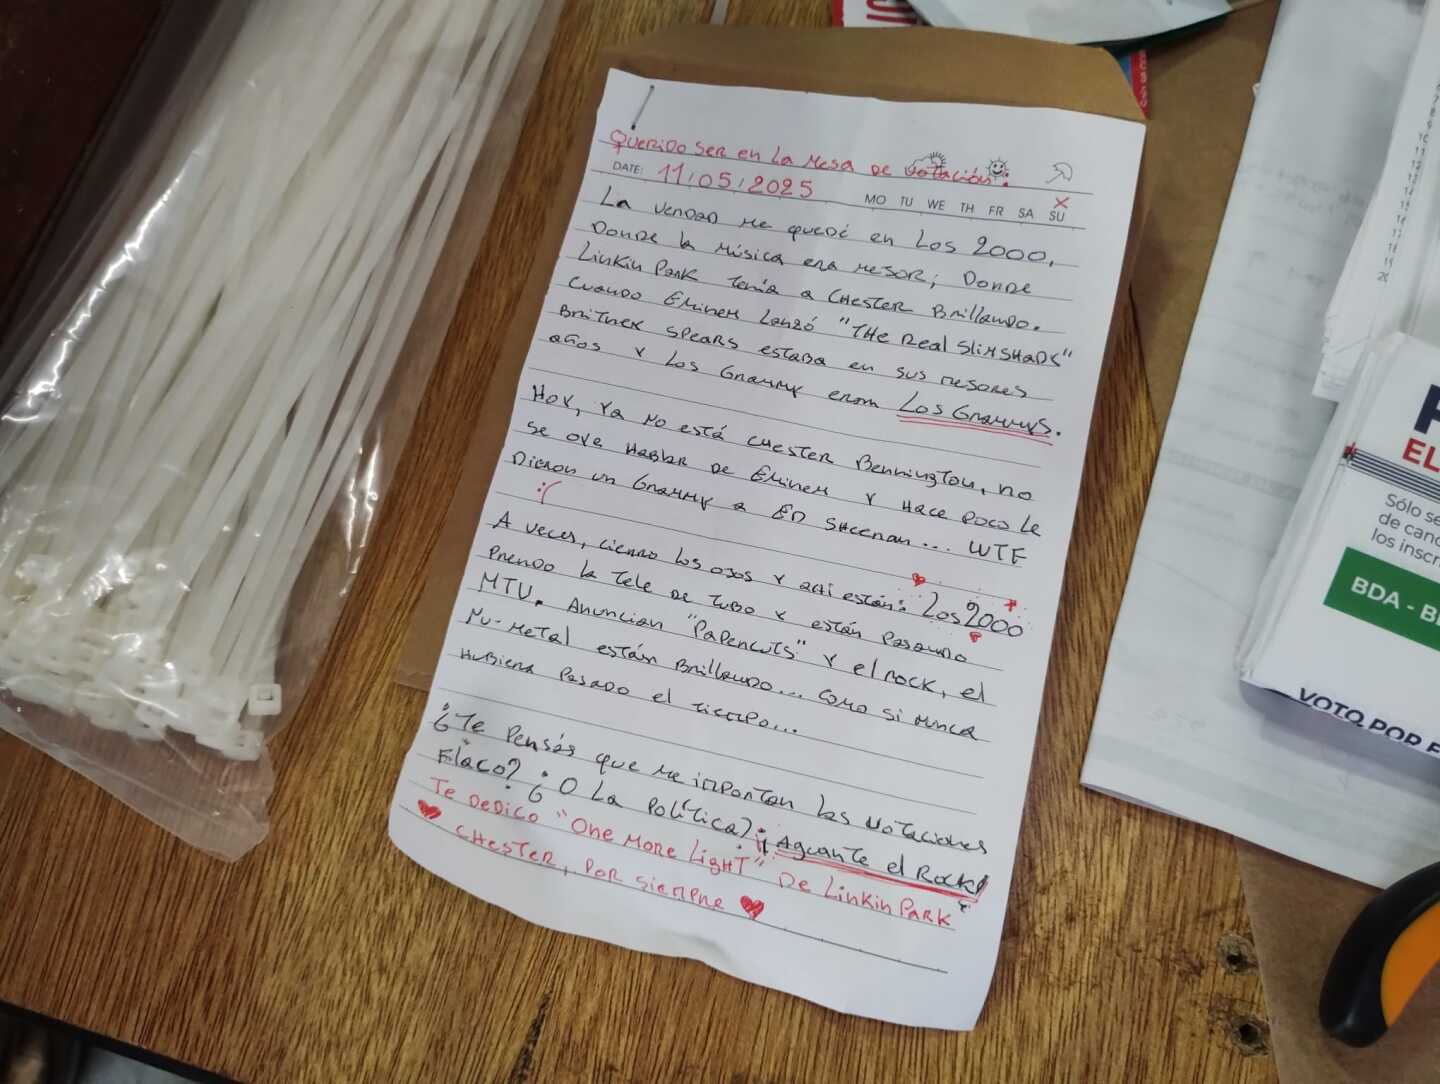 Querido ser en la mesa de votación:
DATE: 11/05/2025 MO TU WE TH FR SA SU
La verdad me quedé en los 2000,
Donde la música era mejor; donde
Linkin Park tenía a Chester brillando.
Cuando Eminem lanzó "The Real Slim Shady"
Britney Spears estaba en sus mejores
años y los Grammy eran Los Grammys.
Hoy, ya no está Chester Bennington, no
se oye hablar de Eminem y hace poco le
dieron un Grammy a Ed Sheeran... WTF
:(
A veces, cierro los ojos y ahí están: Los 2000
Prendo la tele de tubo y están pasando
MTV. Anuncian "Papercuts" y el rock, el
Nu-Metal están brillando... como si nunca
hubiera pasado el tiempo...
¿Te pensás que me importan las votaciones
Flaco? ¿O la política? ¡Aguante el Rock!
Te dedico "One More Light" de Linkin Park
♥ Chester, por siempre ♥
EL
Sólo se
de
los inscr
BDA - B
VOTO POR